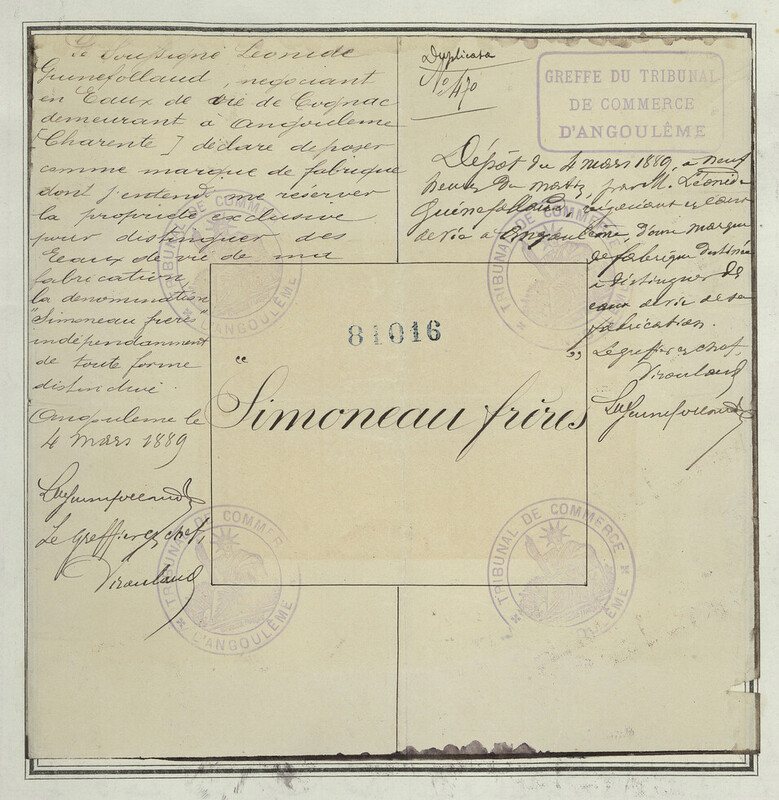 Je Soussigné Léonide
Guénefollaud, négociant
en Eaux de vie de Cognac
demeurant à Angoulême
[Charente] déclare déposer
comme marque de fabrique
dont j'entends me réserver
la propriété exclusive
pour distinguer des
Eaux de vie de ma
fabrication
la dénomination
"Simoneau frères"
indépendamment
de toute forme
distinctive.
Angoulême le
4 Mars 1889
LeGuenefollaud
Le Greffier en chef,
Virouland
Duplicata
No 470
GREFFE DU TRIBUNAL
DE COMMERCE
D'ANGOULÊME
Dépôt du 4 mars 1889, à neuf
heures du matin, par M. Léonide
Guénefollaud, négociant en eaux
de vie à Angoulême, d'une marque
de fabrique destinée
à distinguer des
eaux de vie de sa
fabrication.
Le greffier en chef,
Virouland
Guenefollaud
81016
"Simoneau frères"
TRIBUNAL DE COMMERCE
D'ANGOULÊME
TRIBUNAL DE COMMERCE
TRIBUNAL DE COMMERCE
D'ANGOULÊME
TRIBUNAL DE COMMERCE